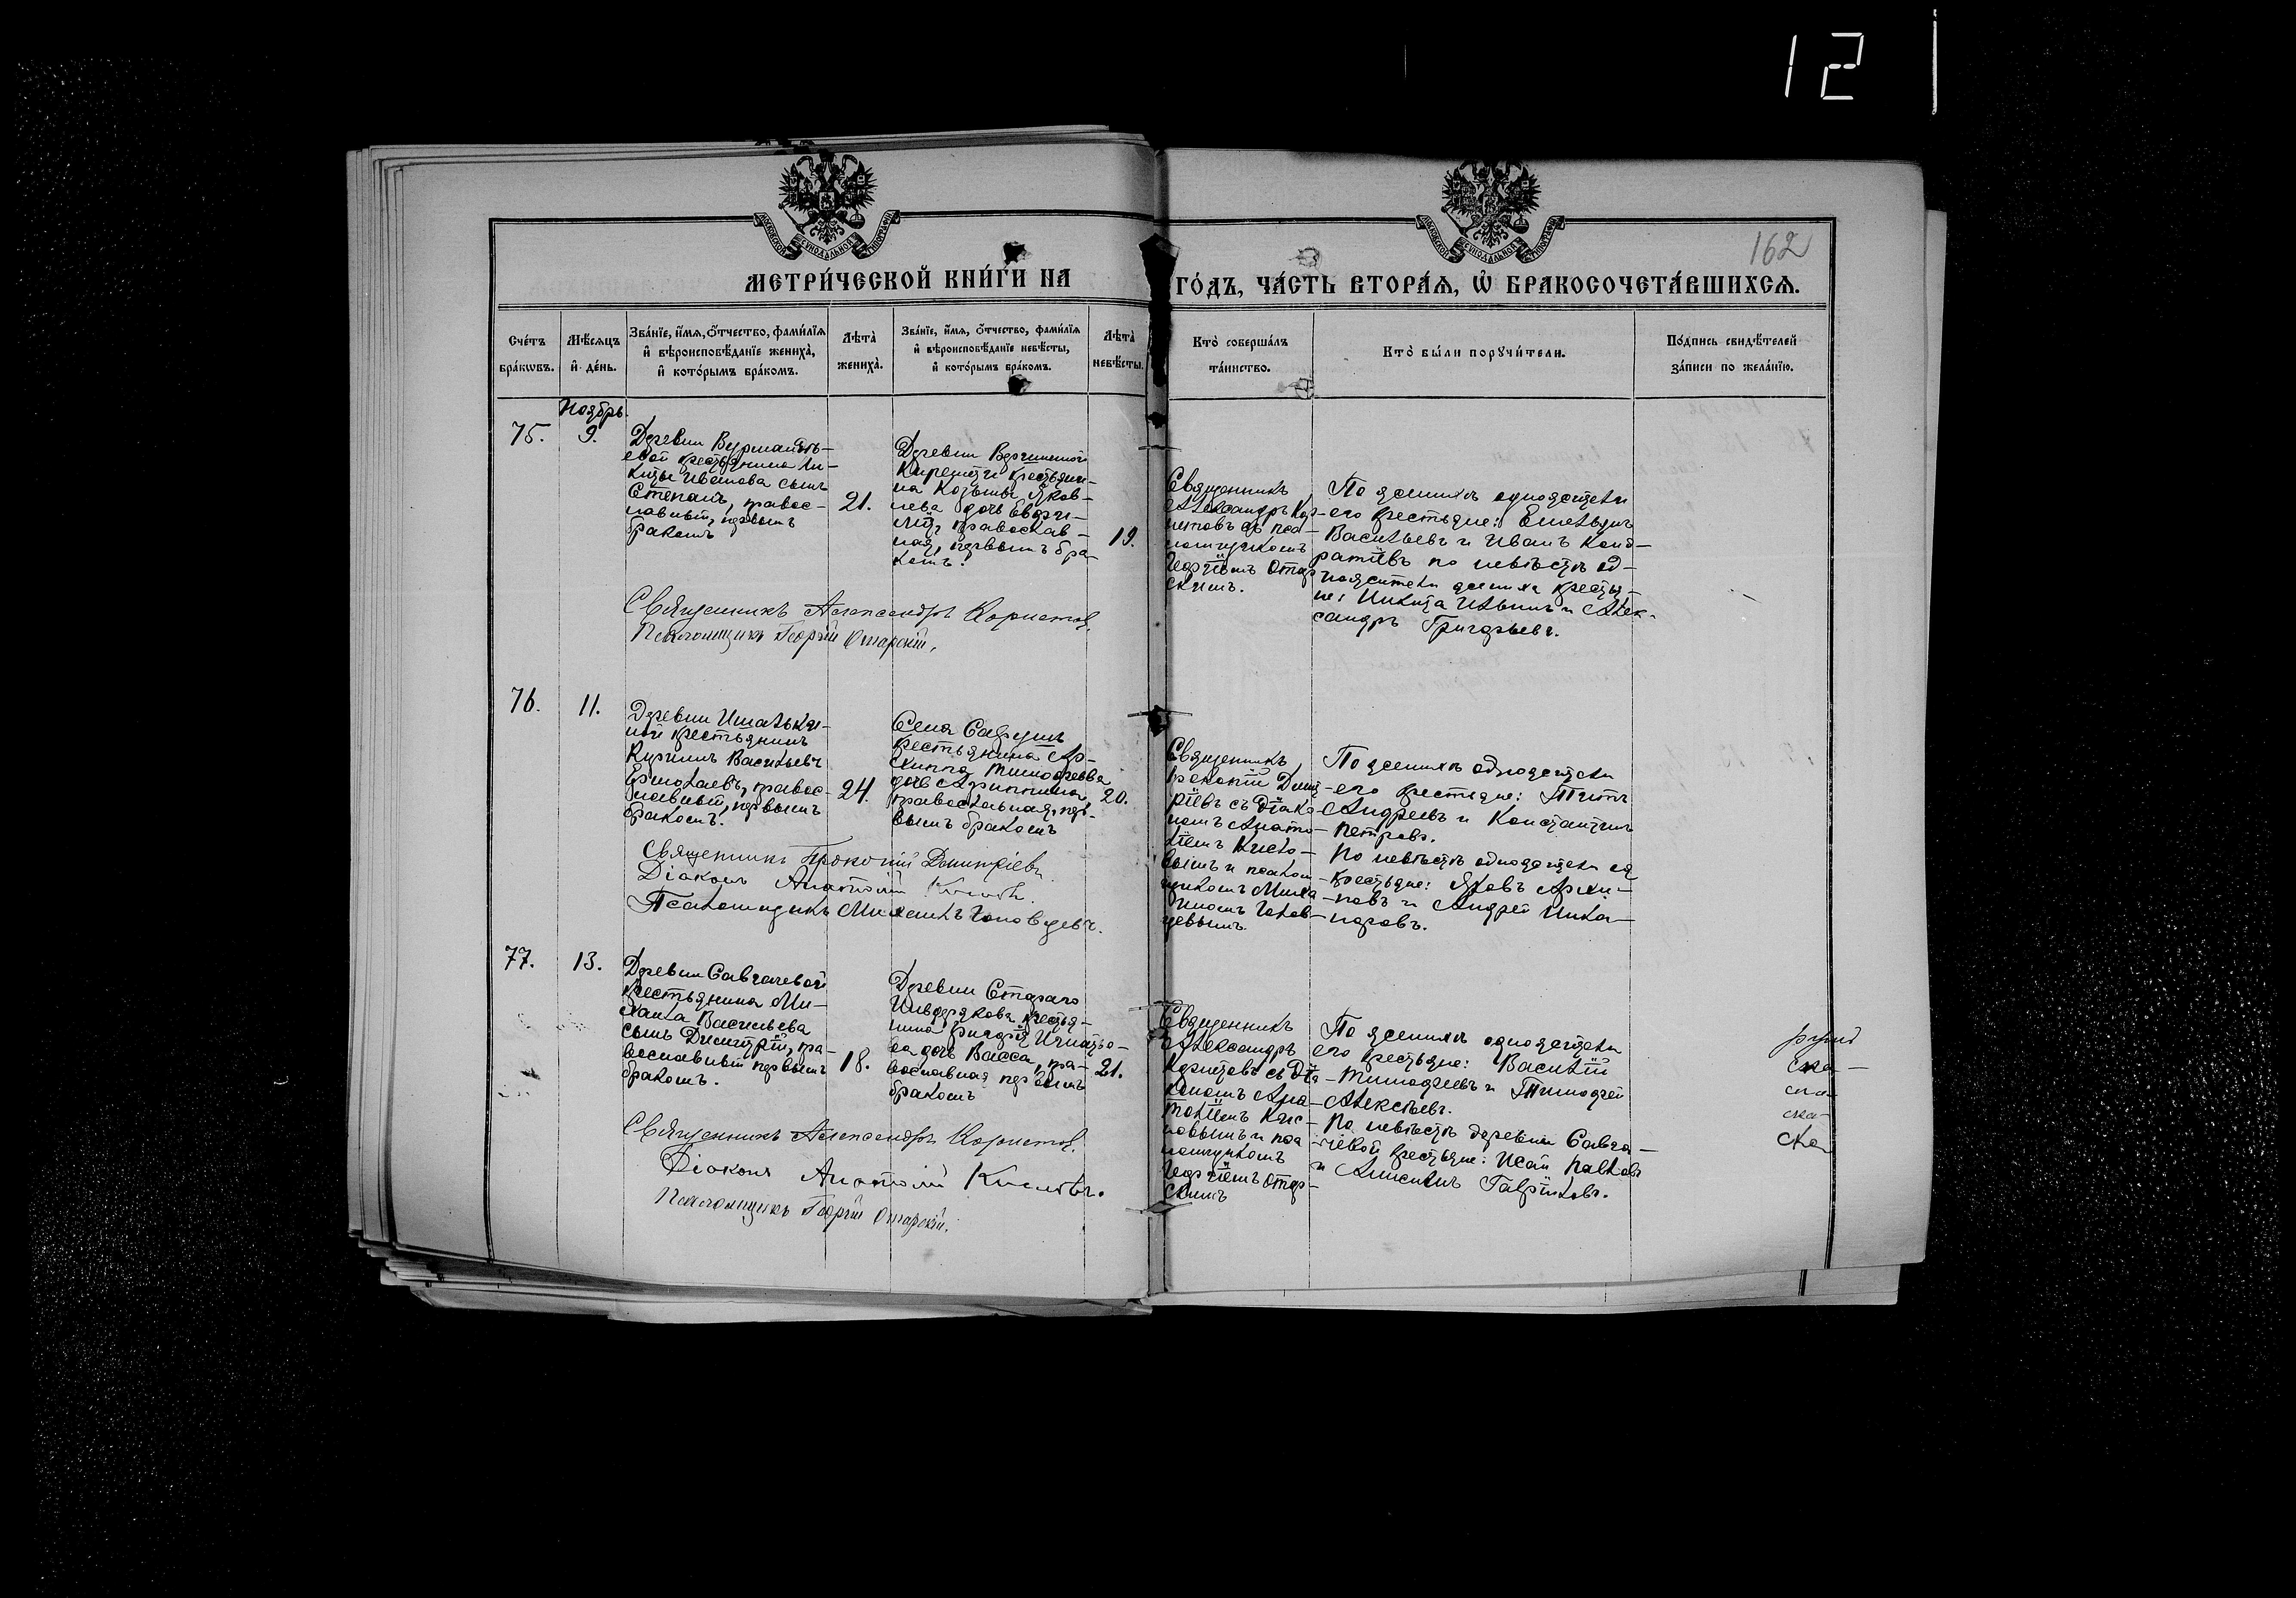 12
162
МЕТРИ́ЧЕСКОЙ КНИ́ГИ НА ГО́ДЪ, ЧА́СТЬ ВТОРА́Ѧ, Ѡ҆ БРАКОСОЧЕТА́ВШИХСѦ.
Сче́тъ бра́кѡвъ.
Мѣ́сѧцъ и҆ де́нь.
Зва́нїе, и҆́мѧ, ѻ҆́тчество, фами́лїѧ и҆ вѣроисповѣ́данїе жениха̀, и҆ кото́рымъ бра́комъ.
Лѣта̀ жениха̀.
Зва́нїе, и҆́мѧ, ѻ҆́тчество, фами́лїѧ и҆ вѣроисповѣ́данїе невѣ́сты, и҆ кото́рымъ бра́комъ.
Лѣта̀ невѣ́сты.
Кто̀ соверша́лъ та́инство.
Кто̀ бы́ли порꙋчи́тели.
По́дпись свидѣ́телей за́писи по жела́нїю.
Ноябрь.
75.
9.
Деревни
крестьянина Ни-
киты Иванова сынъ
Степанъ, правос-
лавный, первымъ
бракомъ
21.
Деревни
крестьяни-
на Козьмы Яков-
лева дочь
православ-
ная, первымъ бра-
комъ.
19.
Священникъ
Александръ Кор-
нетовъ съ пса-
ломщикомъ
Георгіемъ Отар-
скимъ.
По женихѣ однодеревен-
его крестьяне: Емельянъ
Васильевъ и Иванъ Конд-
ратіевъ по невѣстѣ од-
крестья-
не: Никита Ильинъ и Алек-
сандръ Григорьевъ.
Священникъ Александръ Корнетов.
Псаломщикъ Георгій Отарскій.
76.
11.
Деревни
ной крестьянинъ
Васильевъ
Ермолаевъ, правос-
лавный, первымъ
бракомъ.
24.
Села
крестьянина Ар-
хиппа Тимофеева
дочь Агриппина
православная, пер-
вымъ бракомъ
20.
Священникъ
Прокопій Димит-
ріевъ съ Діако-
номъ Анато-
ліемъ Кисло-
вымъ и псалом-
щикомъ Миха-
иломъ
По женихѣ
его крестьяне: Титъ
Андреевъ и Константинъ
Петровъ.
По невѣстѣ ея
крестьяне: Яковъ Архи-
повъ и Андрей Ника-
норовъ.
Священникъ Прокопій Димитріевъ
Діаконъ Анатолій Кисловъ.
Псаломщикъ Михаилъ
77.
13.
Деревни Савгачевой
крестьянина Ми-
хаила Васильева
сынъ Димитрій, пра-
вославный первымъ
бракомъ.
18.
Деревни Стараго
Ильдерякова крестья-
нина Игнатье-
ва дочь Васса, пра-
вославная первымъ
бракомъ
21.
Священникъ
Александръ
Корнетовъ съ Діа-
кономъ Ана-
толіемъ Кис-
ловымъ и пса-
ломщикомъ
Георгіемъ Отар-
скимъ
По женихѣ
его крестьяне: Василій
Тимофеевъ и Тимофей
Алексѣевъ.
По невѣстѣ деревни Савга-
чевой крестьяне: Исай Павловъ
и Анисимъ Гавриловъ.
Священникъ Александръ Корнетов.
Діаконъ Анатолій Кисловъ.
Псаломщикъ Георгій Отарскій.